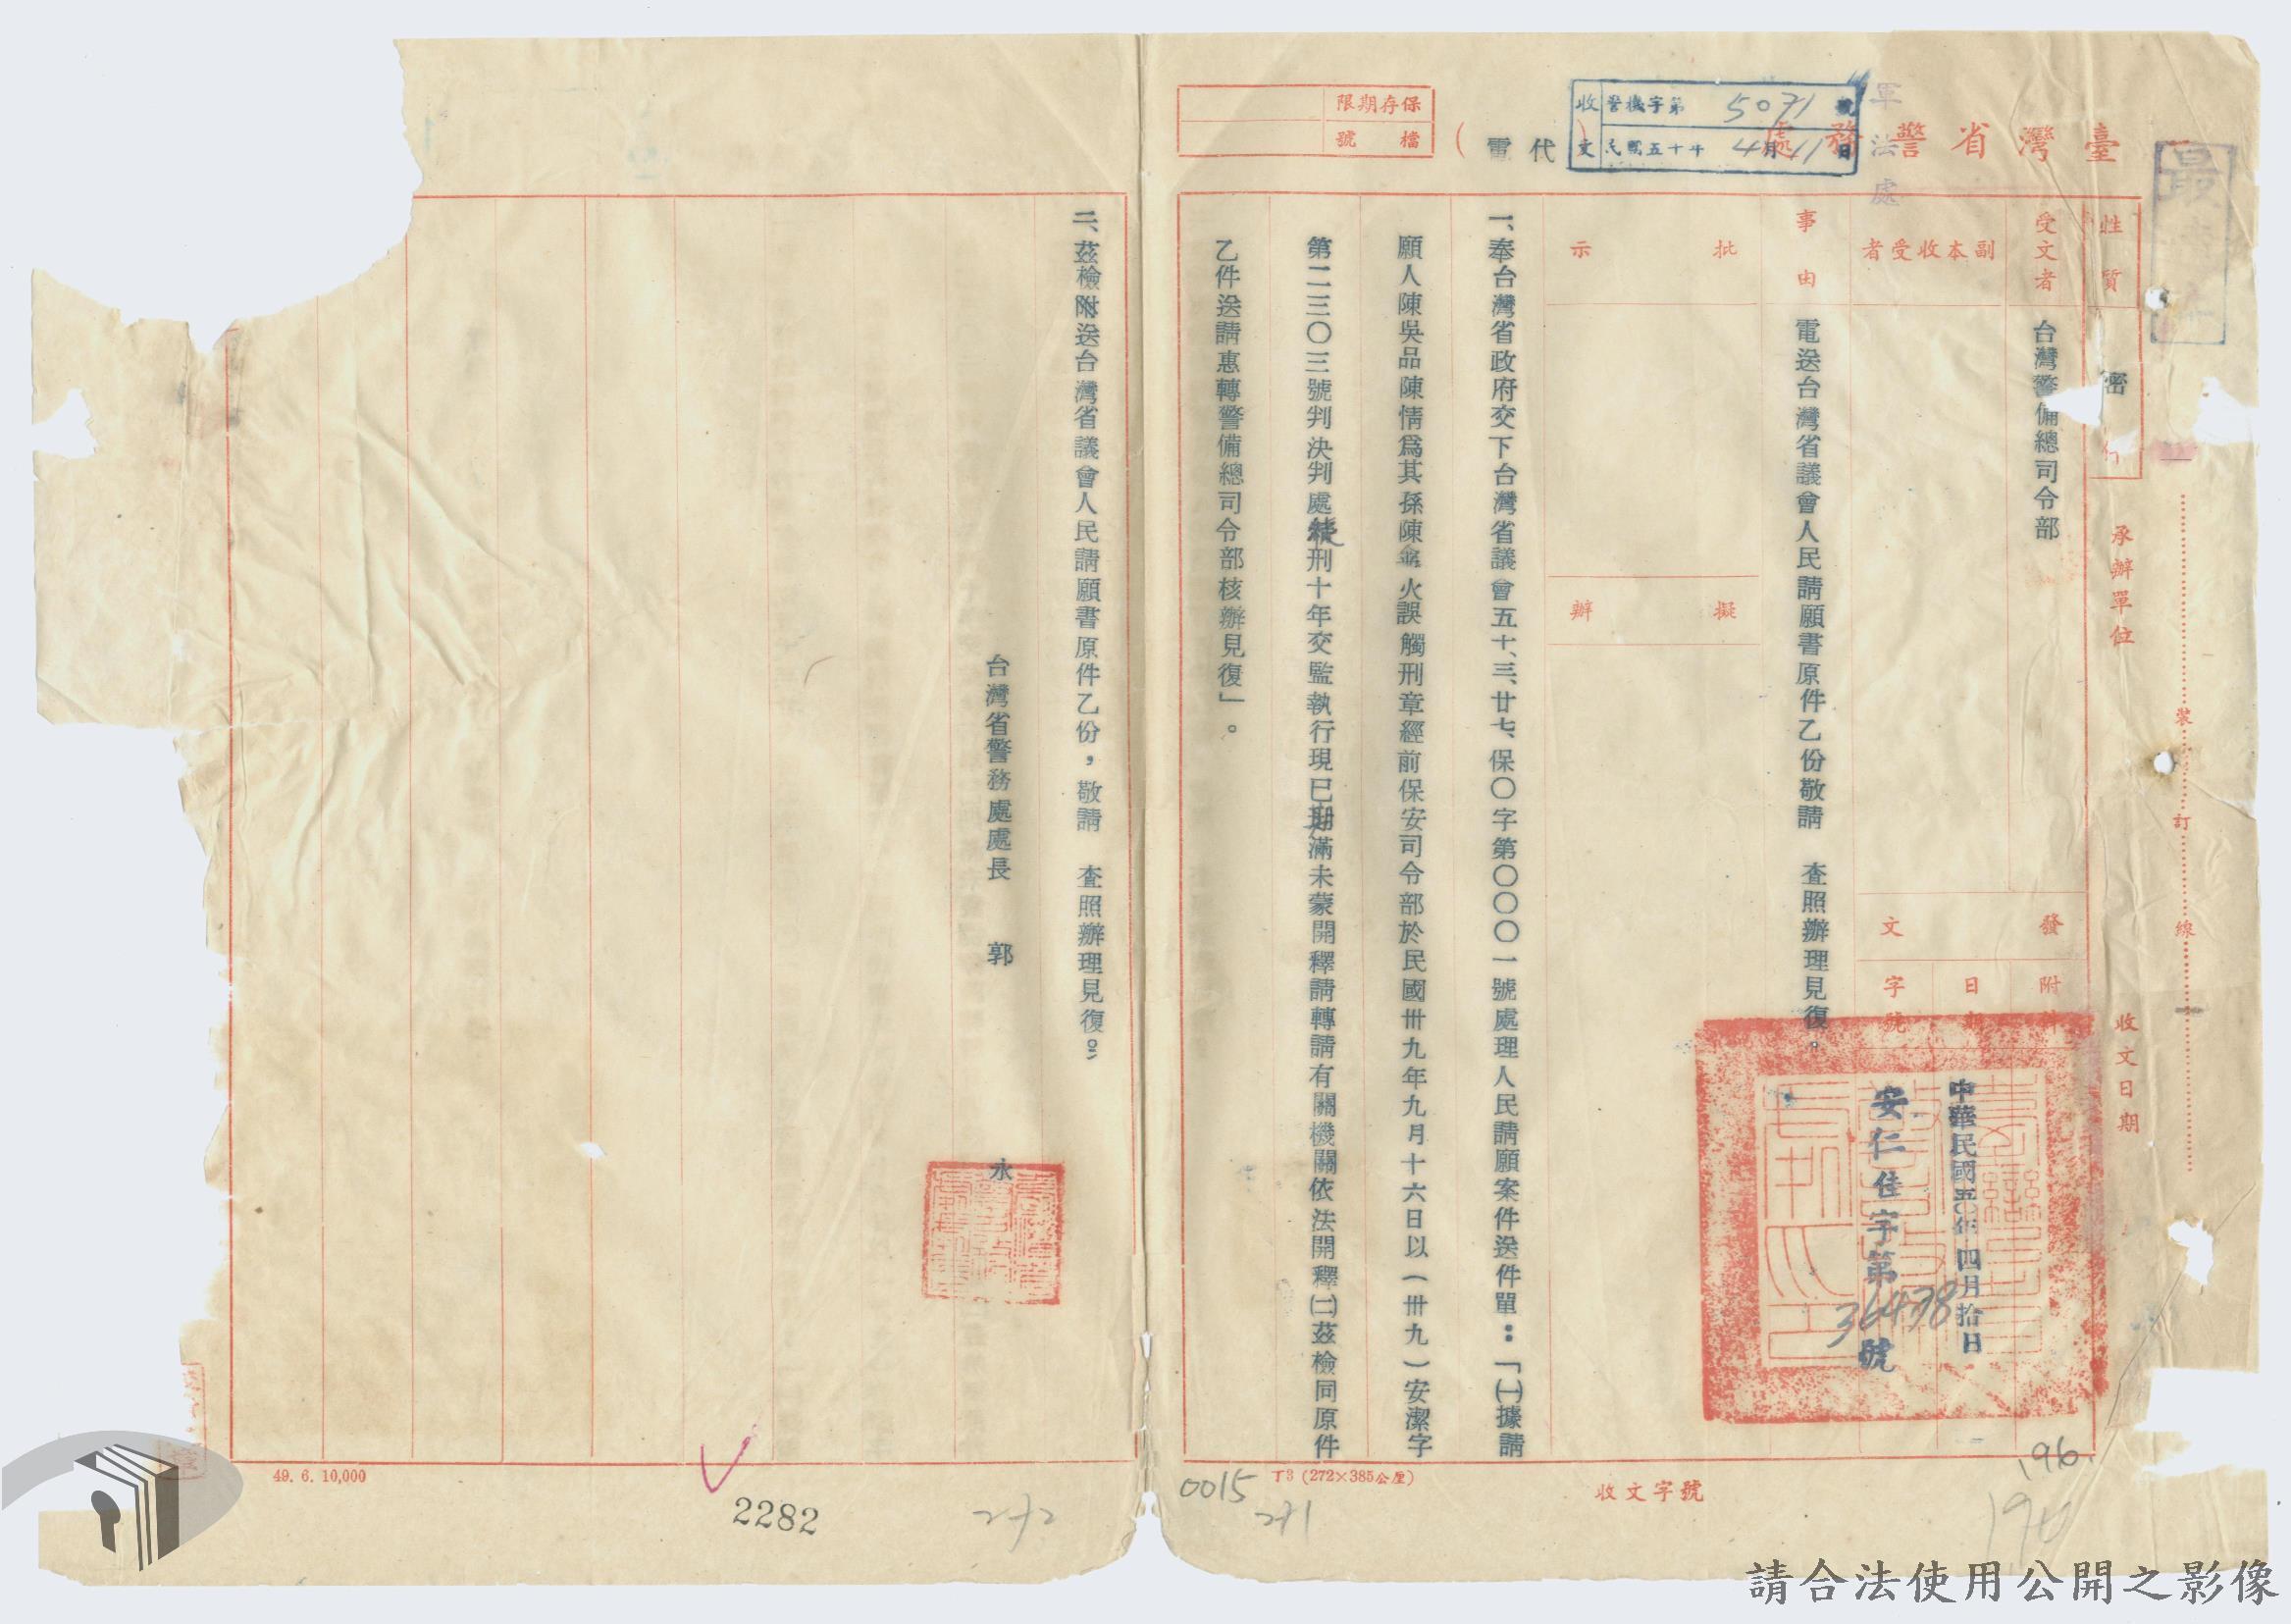 臺灣省警務處
代電
保存期限
檔號
收文
警機字第5071號
民國五十年4月11日
軍法處
性質
密
承辦單位
收文日期
裝訂線
受文者
台灣警備總司令部
副本收受者
發文
附件
日期
字號
中華民國五十年四月拾日
安仁佳字第36438號
事由
電送台灣省議會人民請願書原件乙份敬請 查照辦理見復。
批示
擬辦
一、奉台灣省政府交下台灣省議會五十、三、廿七、保〇字第〇〇〇一號處理人民請願案件送件單：「㈠據請
願人陳吳品陳情為其孫陳火誤觸刑章經前保安司令部於民國卅九年九月十六日以（卅九）安潔字
第二三〇三號判決判處徒刑十年交監執行現已期滿未蒙開釋請轉請有關機關依法開釋㈡茲檢同原件
乙件送請惠轉警備總司令部核辦見復」。
二、茲檢附送台灣省議會人民請願書原件乙份，敬請 查照辦理見復。
台灣省警務處處長 郭 永
49. 6. 10,000
2282
272
0015
271
T3 (272×385公厘)
收文字號
196
請合法使用公開之影像